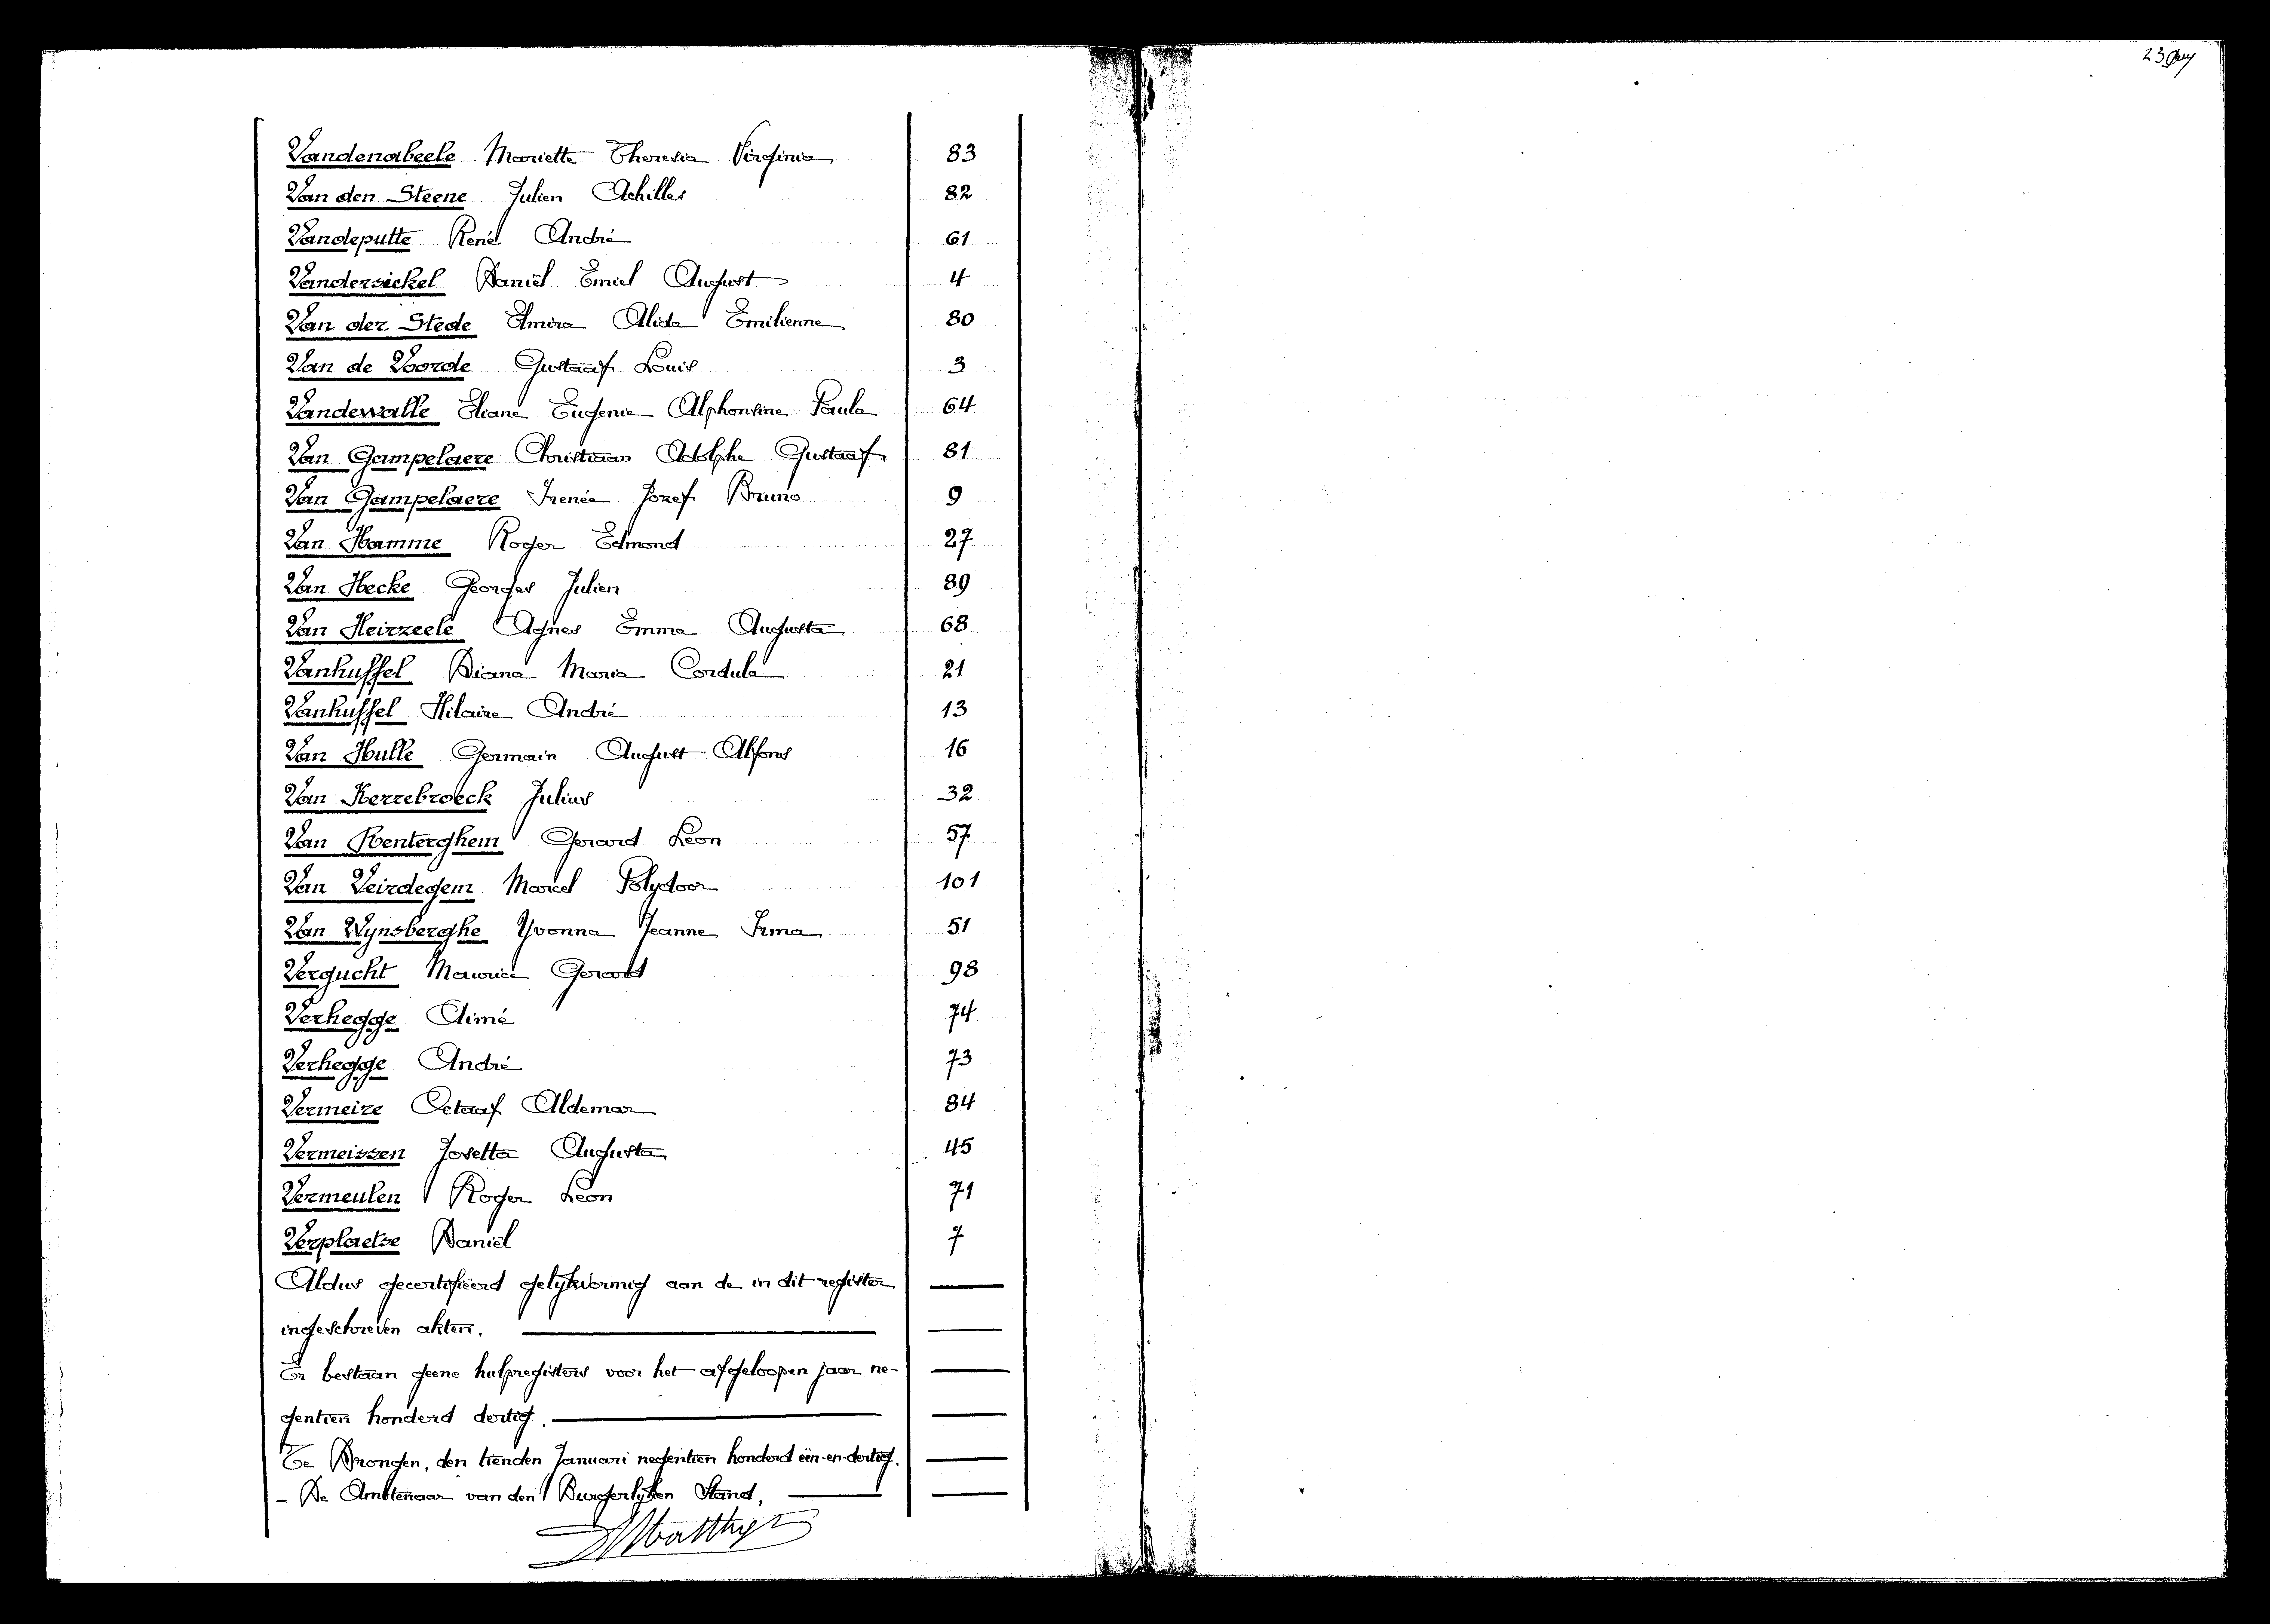 Vandenabeele Mariette Theresia Virginia 83
Van den Steene Julien Achilles 82
Vandeputte René André 61
Vandersickel Daniël Emiel August 4
Van der Stede Elmira Alida Emilienne 80
Van de Voorde Gustaaf Louis 3
Vandewalle Eliane Eugenie Alphonsine Paula 64
Van Gampelaere Christiaan Adolphe Gustaaf 81
Van Gampelaere Irenée Jozef Bruno 9
Van Hamme Roger Edmond 27
Van Hecke Georges Julien 89
Van Heirzeele Agnes Emma Augusta 68
Vanhuffel Diana Maria Cordula 21
Vanhuffel Hilaire André 13
Van Hulle Germain August Alfons 16
Van Kerrebroeck Julius 32
Van Renterghem Gerard Leon 57
Van Veirdegem Marcel Polydoor 101
Van Wynsberghe Yvonna Jeanne Irma 51
Vergucht Maurice Gerard 98
Verhegge Aimé 74
Verhegge André 73
Vermeire Octaaf Aldemar 84
Vermeissen Josetta Augusta 45
Vermeulen Roger Leon 71
Verplaetse Daniël 7
Aldus gecertifieerd gelijkvormig aan de in dit register
ingeschreven akten.
Er bestaan geene hulpregisters voor het afgeloopen jaar ne-
gentien honderd dertig.
Te Drongen, den tienden Januari negentien honderd één-en-dertig.
- De Ambtenaar van den Burgerlijken Stand,
23